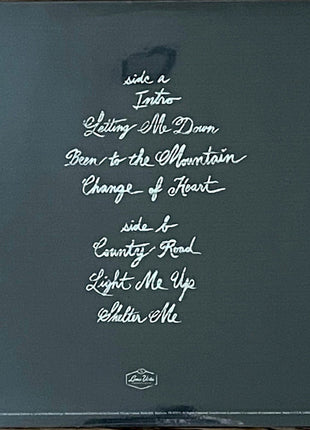 side a
Intro
Letting Me Down
Been to the Mountain
Change of Heart
side b
Country Road
Light Me Up
Shelter Me
Loma Vista